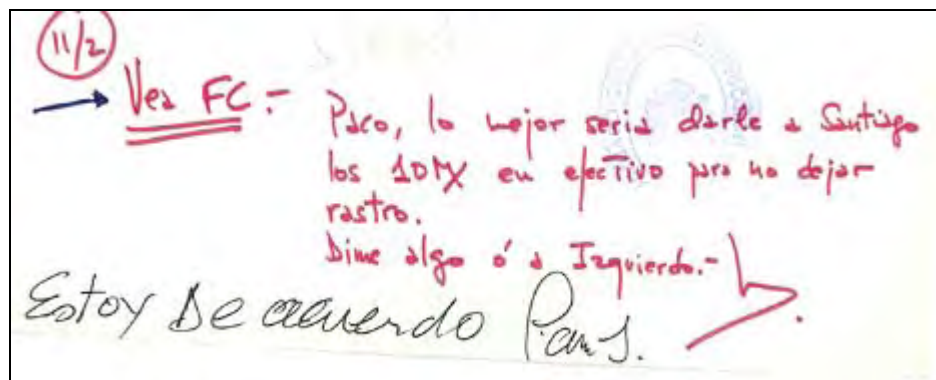 11/2
Vea FC.-
Paco, lo mejor seria darle a Santiago
los 10M en efectivo para no dejar
rastro.
Dime algo ó a Izquierdo.-
Estoy De acuerdo